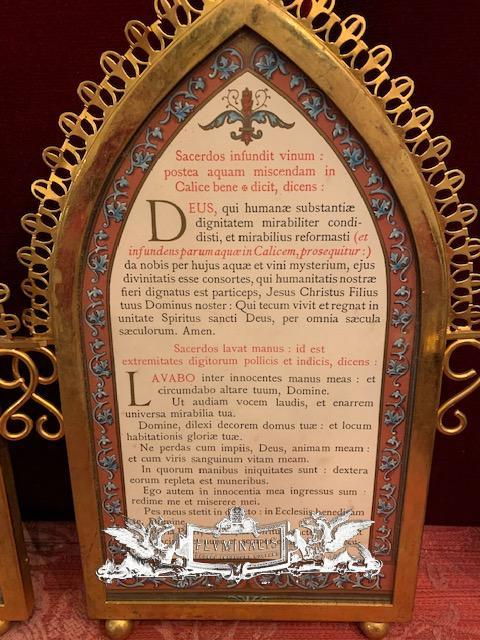 Sacerdos infundit vinum :
postea aquam miscendam in
Calice bene ✠ dicit, dicens :
DEUS, qui humanæ substantiæ
dignitatem mirabiliter condi-
disti, et mirabilius reformasti (et
infundens parum aquæ in Calicem, prosequitur :)
da nobis per hujus aquæ et vini mysterium, ejus
divinitatis esse consortes, qui humanitatis nostræ
fieri dignatus est particeps, Jesus Christus Filius
tuus Dominus noster : Qui tecum vivit et regnat in
unitate Spiritus sancti Deus, per omnia sæcula
sæculorum. Amen.
Sacerdos lavat manus : id est
extremitates digitorum pollicis et indicis, dicens :
LAVABO inter innocentes manus meas : et
circumdabo altare tuum, Domine.
Ut audiam vocem laudis, et enarrem
universa mirabilia tua.
Domine, dilexi decorem domus tuæ : et locum
habitationis gloriæ tuæ.
Ne perdas cum impiis, Deus, animam meam :
et cum viris sanguinum vitam meam.
In quorum manibus iniquitates sunt : dextera
eorum repleta est muneribus.
Ego autem in innocentia mea ingressus sum :
redime me et miserere mei.
Pes meus stetit in : in Ecclesiis benedicam
FLUMINALIS